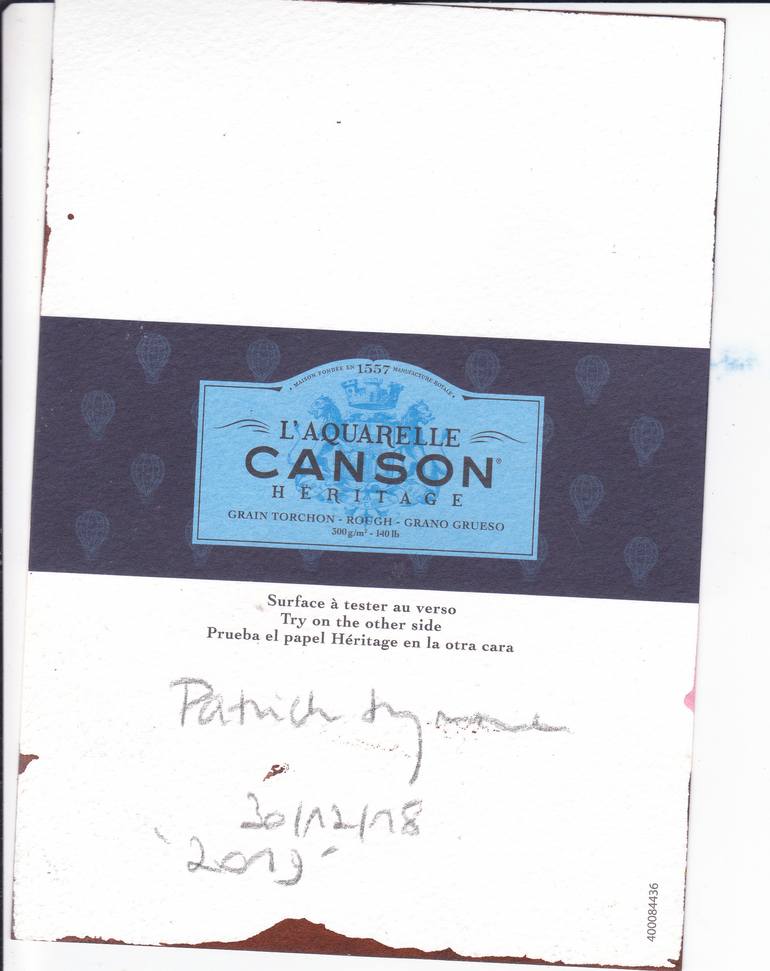 MAISON FONDÉE EN 1557 MANUFACTURE ROYALE
L'AQUARELLE
CANSON®
HÉRITAGE
GRAIN TORCHON - ROUGH - GRANO GRUESO
300 g/m² - 140 lb
Surface à tester au verso
Try on the other side
Prueba el papel Héritage en la otra cara
Patrick
30/12/18
"2019"
400084436